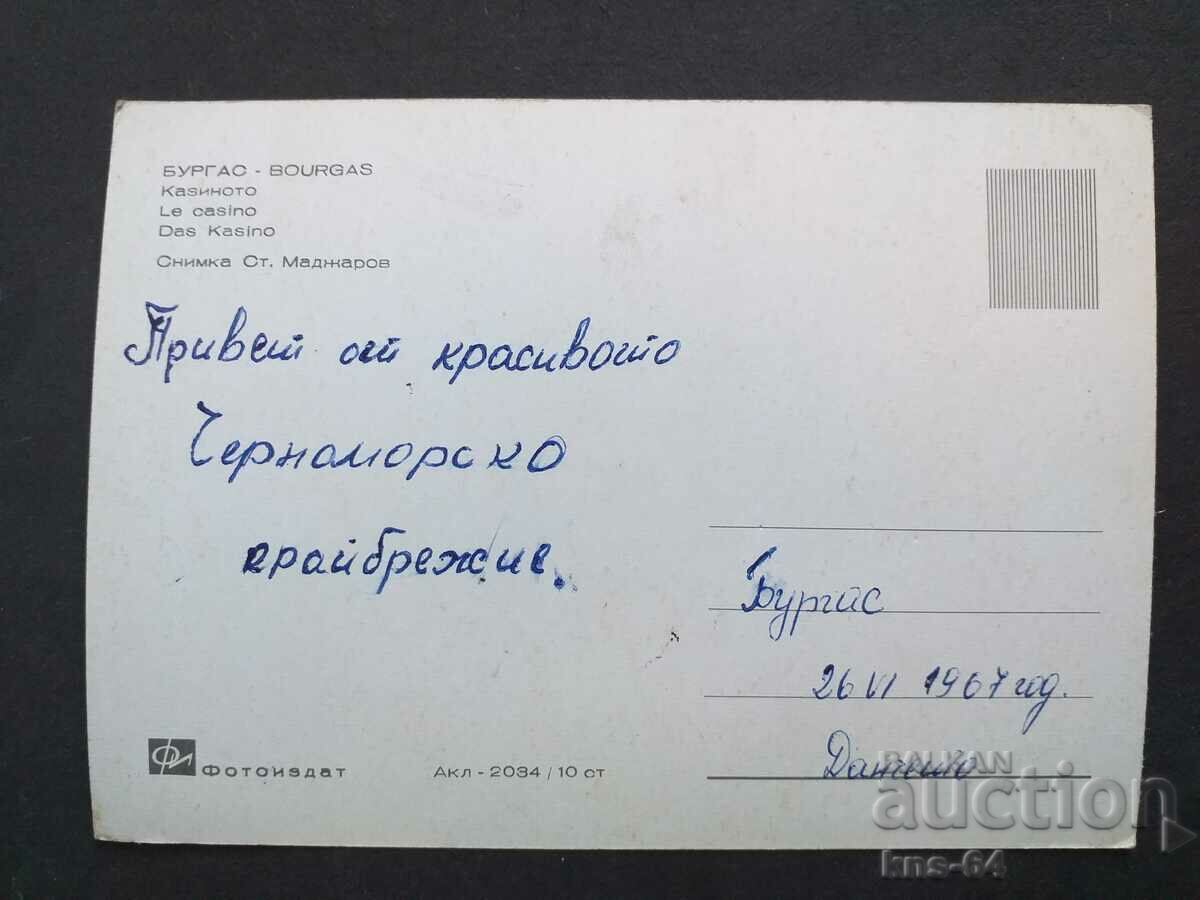 БУРГАС - BOURGAS
Казиното
Le casino
Das Kasino
Снимка Ст. Маджаров
Привет от красивото
Черноморско
крайбрежие.
Бургас
26 VI 1967 год.
Фотоиздат
Акл - 2034 / 10 ст
BALKAN
auction
kns-64